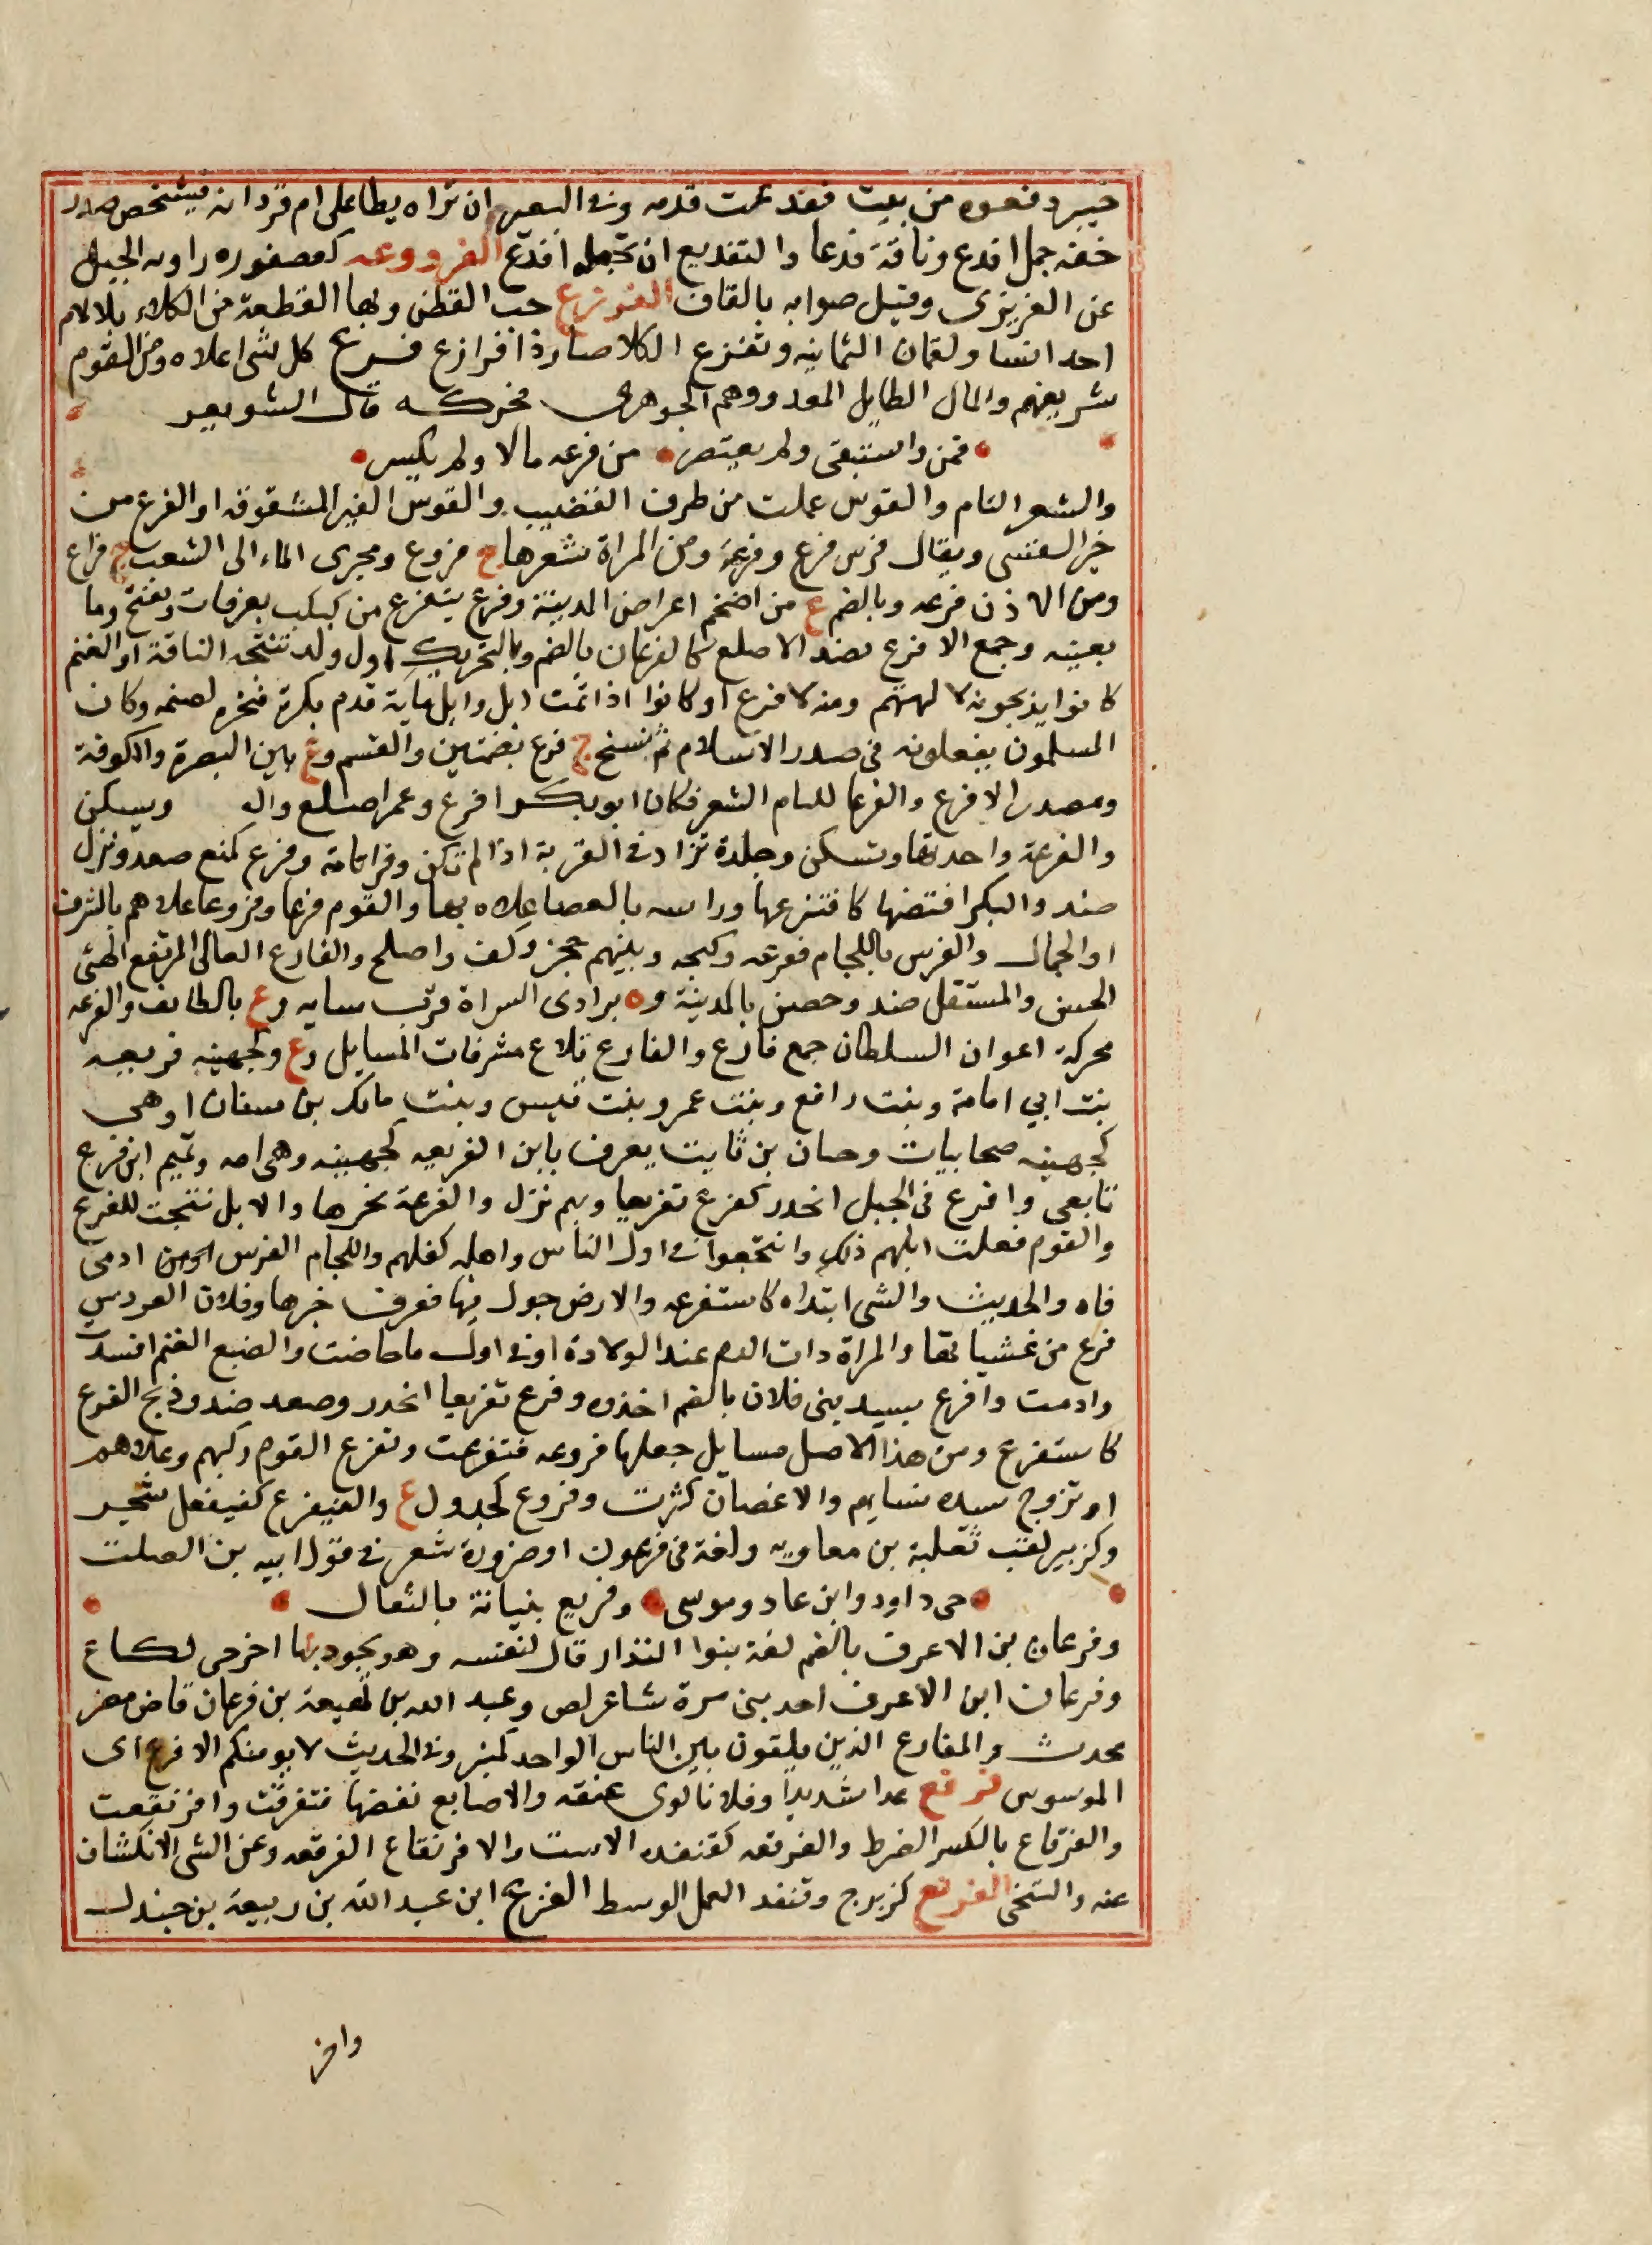 خيبر دفعوه من بيت ففدعت قدمه وفى البعير ان تراه يطا على ام قردانه فيشخص صدر
خفه جمل افدع وناقة فدعا والتفديع ان تجعله افدع الفرووعه كعصفوره زاويه الجبل
عن العزيزى وقيل صوابه بالقاف الفرزع حب القطن وبها القطعة من الكلاء بلا لام
احد انسا ولقمان الثمانيه وتفرزع الكلا صارذا فرازع فرع كل شى اعلاه ومن القوم
شريفهم والمال الطايل المعد ووهم الجوهرى فحركه قال الشويعر
فمن واستبقى ولم يعتصر من فرعه مالا ولم يكسر
والشعر التام والقوس عملت من طرف القضيب والقوس الغير المشقوقه او الفرع من
خير القسى ويقال قوس فرع وفرعة ومن المراة شعرها ج فروع ومجرى الماء الى الشعب ج فراع
ومن الاذن فرعه وبالضم ع من اضخم اعراض المدينة وفرع يتفرع من كبكب بعرفات ويفتح وما
بعينه وجمع الافرع لضد الاصلع كالفرعان بالضم وبالتحريك اول ولد تنتجه الناقة او الغنم
كانوا يذبحونه لالهتهم ومنه لا فرع او كانوا اذا تمت ابل وابل ماية قدم بكره فنحره لصنمه وكان
المسلمون يفعلونه فى صدر الاسلام ثم نسخ ج فرع بضمتين والقسم وع بين البصرة والكوفة
ومصدر الافرع والفرعا للتام الشعر فكان ابوبكر افرع وعمر اصلع وال ويسكن
والفرعة واحدتها وتسكن وجلدة تزاد فى القربة اذا لم تكن وفرا تامة وفرع كمنع صعد ونزل
ضد والبكر افتضها كافترعها وراسه بالعصا علاه بها والقوم فرعا وفروعا علاهم بالشرف
او الجمال والفرس باللجام فرعه وكبحه وبينهم حجز وكف واصلح والفارع العالى المرتفع الهنى
الحسن والمستقل ضد وحصن بالمدينة وه بوادى السراة قرب سايه وع بالطايف والفرعه
محركة اعوان السلطان جمع فارع والفارع تلاع مشرفات المسايل وع وكجهينه فريعه
بنت ابي امامة وبنت رافع وبنت عمر وبنت قيس وبنت مالك بن سنان او هى
كجهينه صحابيات وحسان بن ثابت يعرف بابن الفريعه كجهينه وهى امه وتميم ابن فرع
تابعى وافرع فى الجبل انحدر كفرع تفريعا وبهم نزل والفرعة نحرها والابل نتجت للفرع
والقوم فعلت ابلهم ذلك وانتجعوا فى اول الناس واهله كفلهم واللجام الفرس ادمى
فاه والحديث والشى ابتداه كاستفرعه والارض جول فيها فعرف خبرها وفلان العروس
فرع من غشيانها والمراة رات الدم عند الولادة او فى اول ما حاضت والضبع الغنم افسدت
وادمت وافرع بسيد بنى فلان بالضم اخذوه وفرع تفريعا انحدر وصعد ضد وذبح الفرع
كاستفرع ومن هذا الاصل مسايل جعلها فروعه فتفرعت وتفرع القوم ركبهم وعلاهم
او تزوج سيده نسايهم والاغصان كثرت وفروع كجدول ع والفيفرع كفيفعل شجر
وكزبير لقب ثعلبة بن معاويه ولغة فى فرعون او ضرورة شعر فى قول ابيه بن الصلت
حى داود وابن عاد وموسى وفريع بنيانة بالثقال
وفرعان بن الاعرف بالضم لغة بنوا النذار قال لنفسه وهو يجود بها اخرجى لكاع
وفرعان ابن الاعرف احد بنى مرة شاعر لص وعبد الله بن لهيعة بن فرعان قاض مصر
محدث والمفارع الذين يلقون بين الناس الواحد كمنبر وفى الحديث لا يومنكم الافرع اى
الموسوس فرقع عدا شديدا وفلانا لوى عنقه والاصابع نقضها فتفرقعت وافرنقعت
والفرقاع بالكسر الضرط والفرقعه كقنفده الاست والافرنقاع الفرقعه وعن الشى الانكشاف
عنه والتنحى الفرنع كزبرج وقنفد العمل الوسط الفزيع ابن عبد الله بن ربيعة بن جندل
وافز